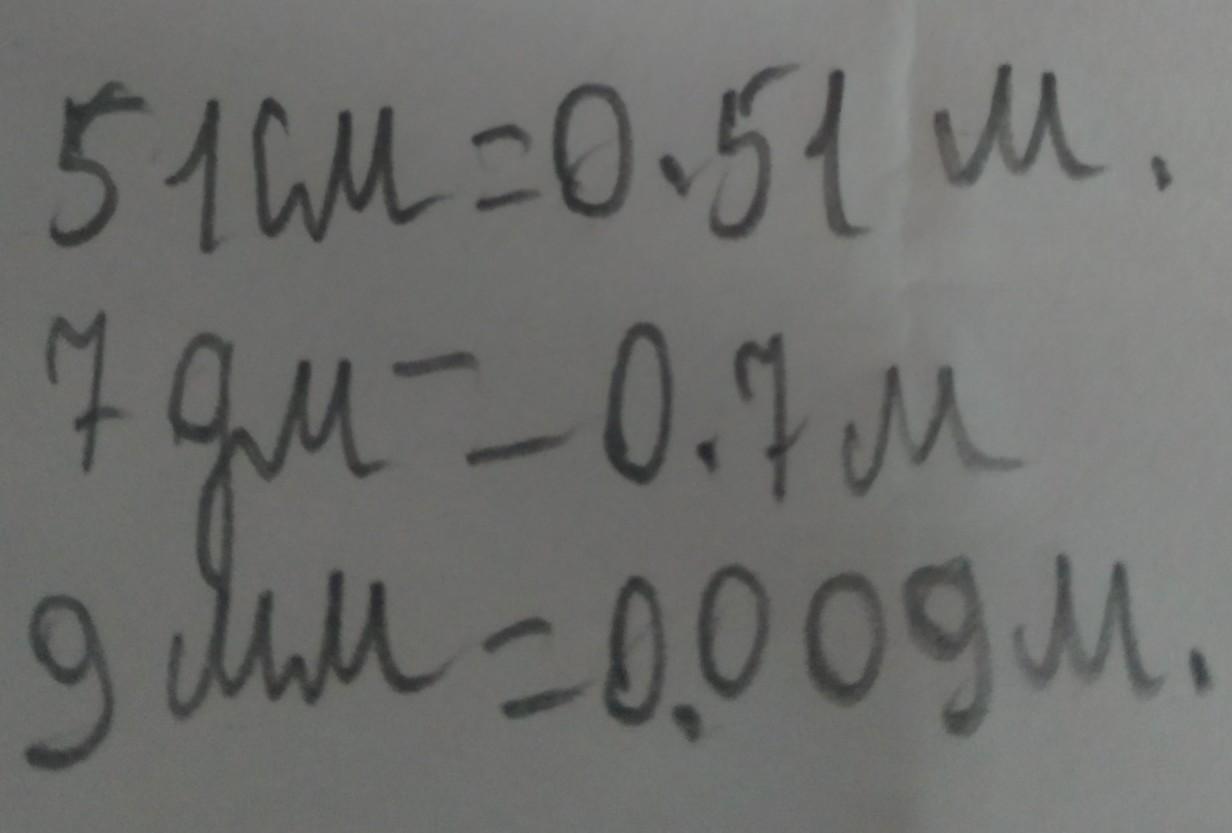 51см=0.51 м.
7 дм = 0.7 м
9 мм = 0.009 м.